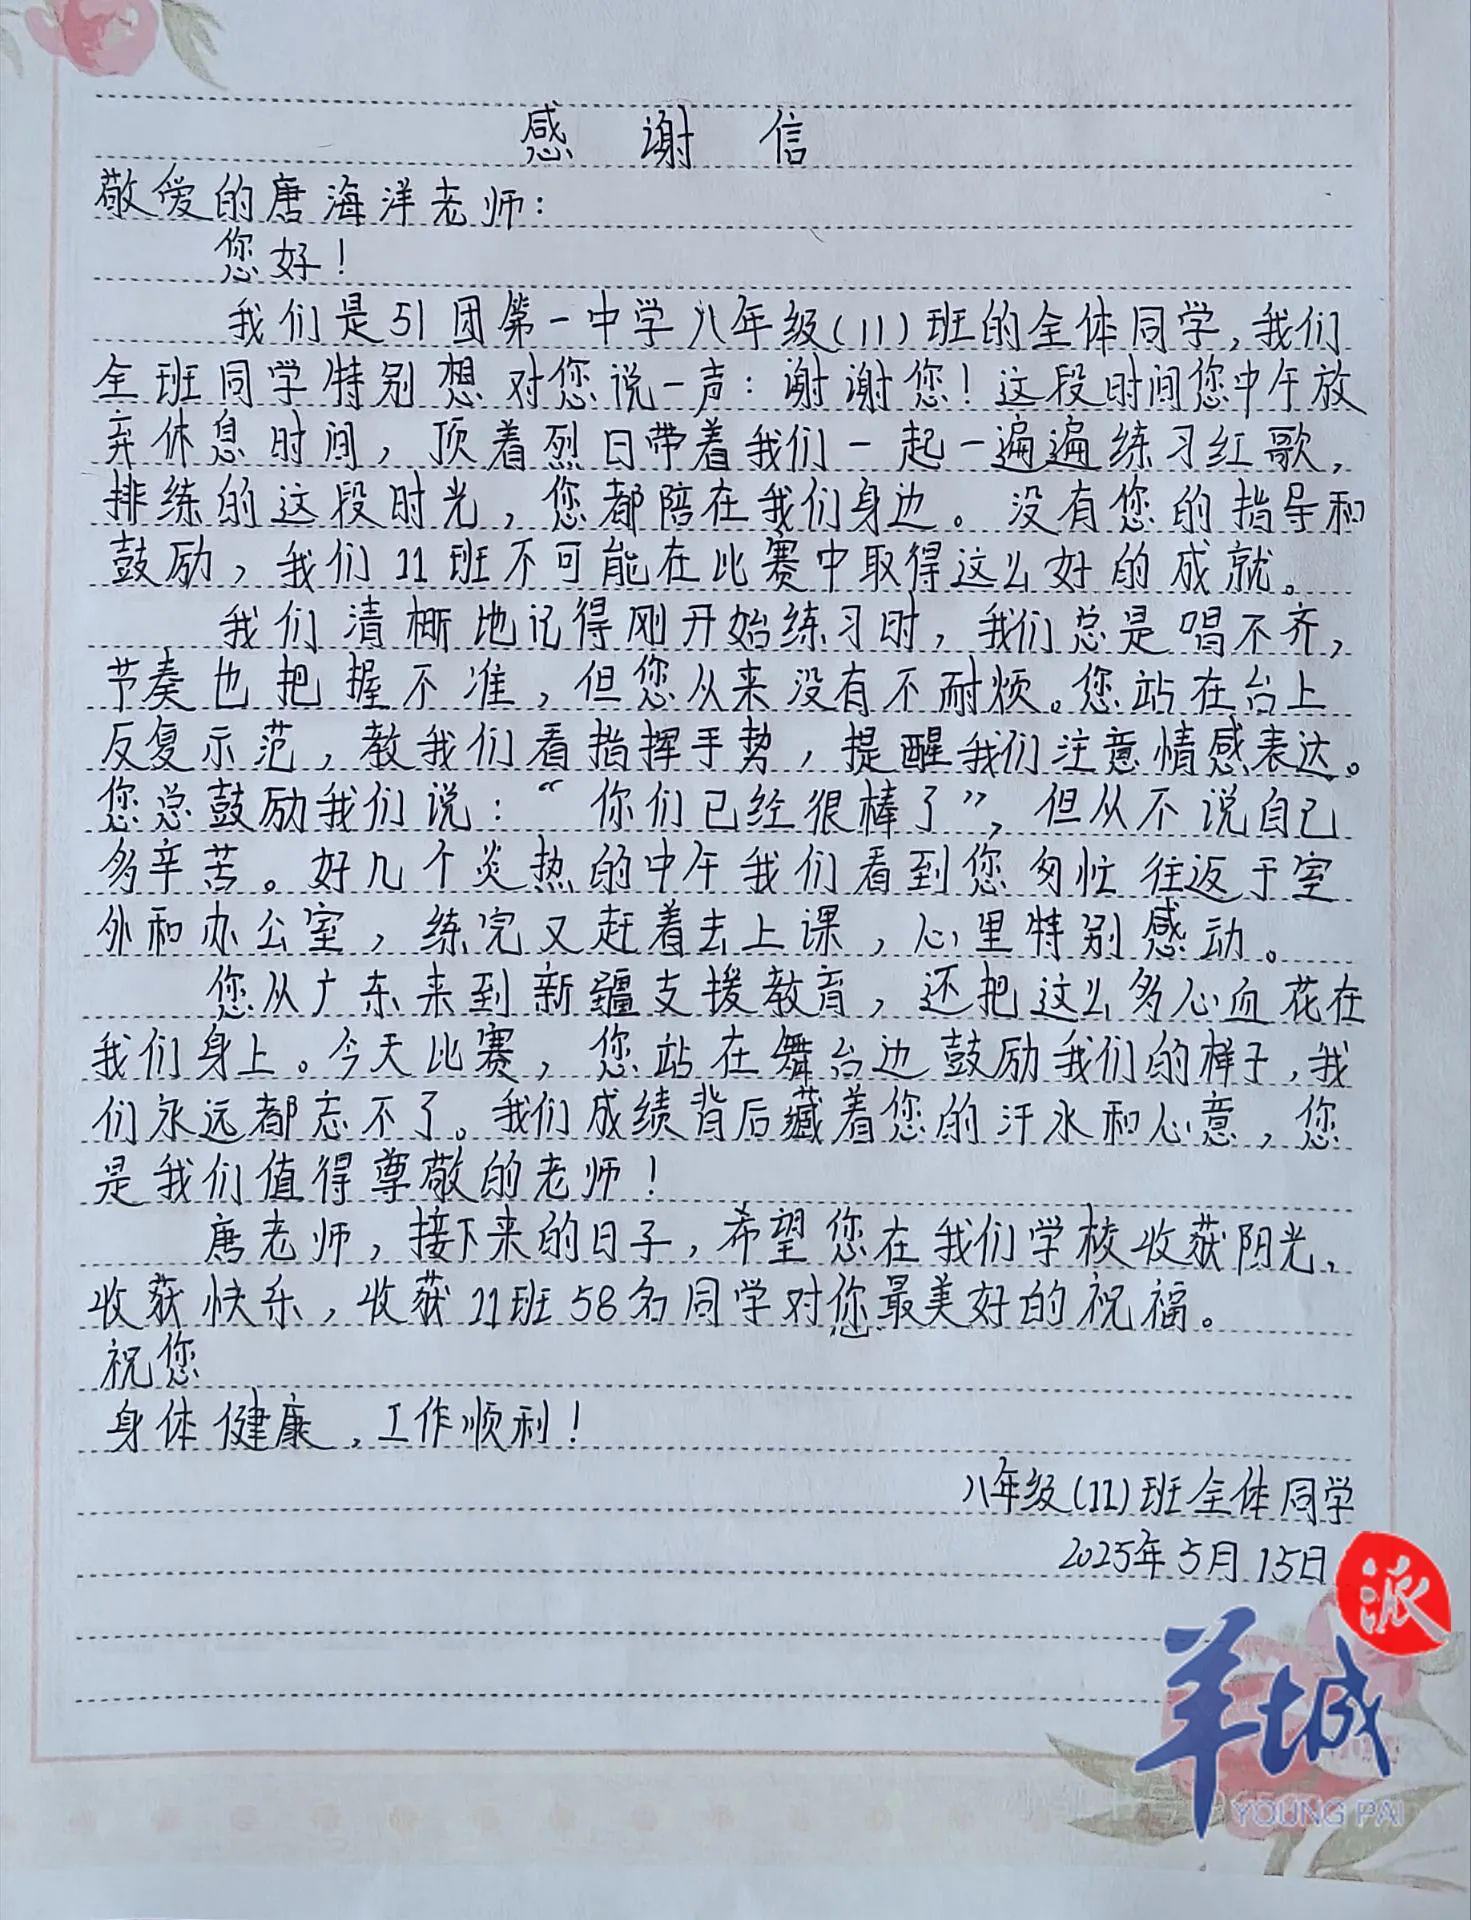 感谢信
敬爱的唐海洋老师：
您好！
我们是51团第一中学八年级(11)班的全体同学，我们
全班同学特别想对您说一声：谢谢您！这段时间您中午放
弃休息时间，顶着烈日带着我们一起一遍遍练习红歌，
排练的这段时光，您都陪在我们身边。没有您的指导和
鼓励，我们11班不可能在比赛中取得这么好的成就。
我们清晰地记得刚开始练习时，我们总是唱不齐，
节奏也把握不准，但您从来没有不耐烦。您站在台上
反复示范，教我们看指挥手势，提醒我们注意情感表达。
您总鼓励我们说：“你们已经很棒了”，但从不说自己
多辛苦。好几个炎热的中午我们看到您匆忙往返于室
外和办公室，练完又赶着去上课，心里特别感动。
您从广东来到新疆支援教育，还把这么多心血花在
我们身上。今天比赛，您站在舞台边鼓励我们的样子，我
们永远都忘不了。我们成绩背后藏着您的汗水和心意，您
是我们值得尊敬的老师！
唐老师，接下来的日子，希望您在我们学校收获阳光，
收获快乐，收获11班58名同学对您最美好的祝福。
祝您
身体健康，工作顺利！
八年级(11)班全体同学
2025年5月15日
派
羊城
YOUNG PAI